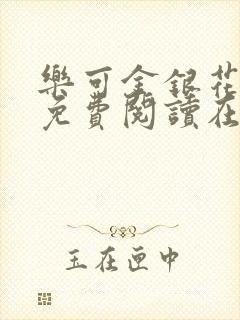 樂可金銀花
免費閱讀在
玉在匣中